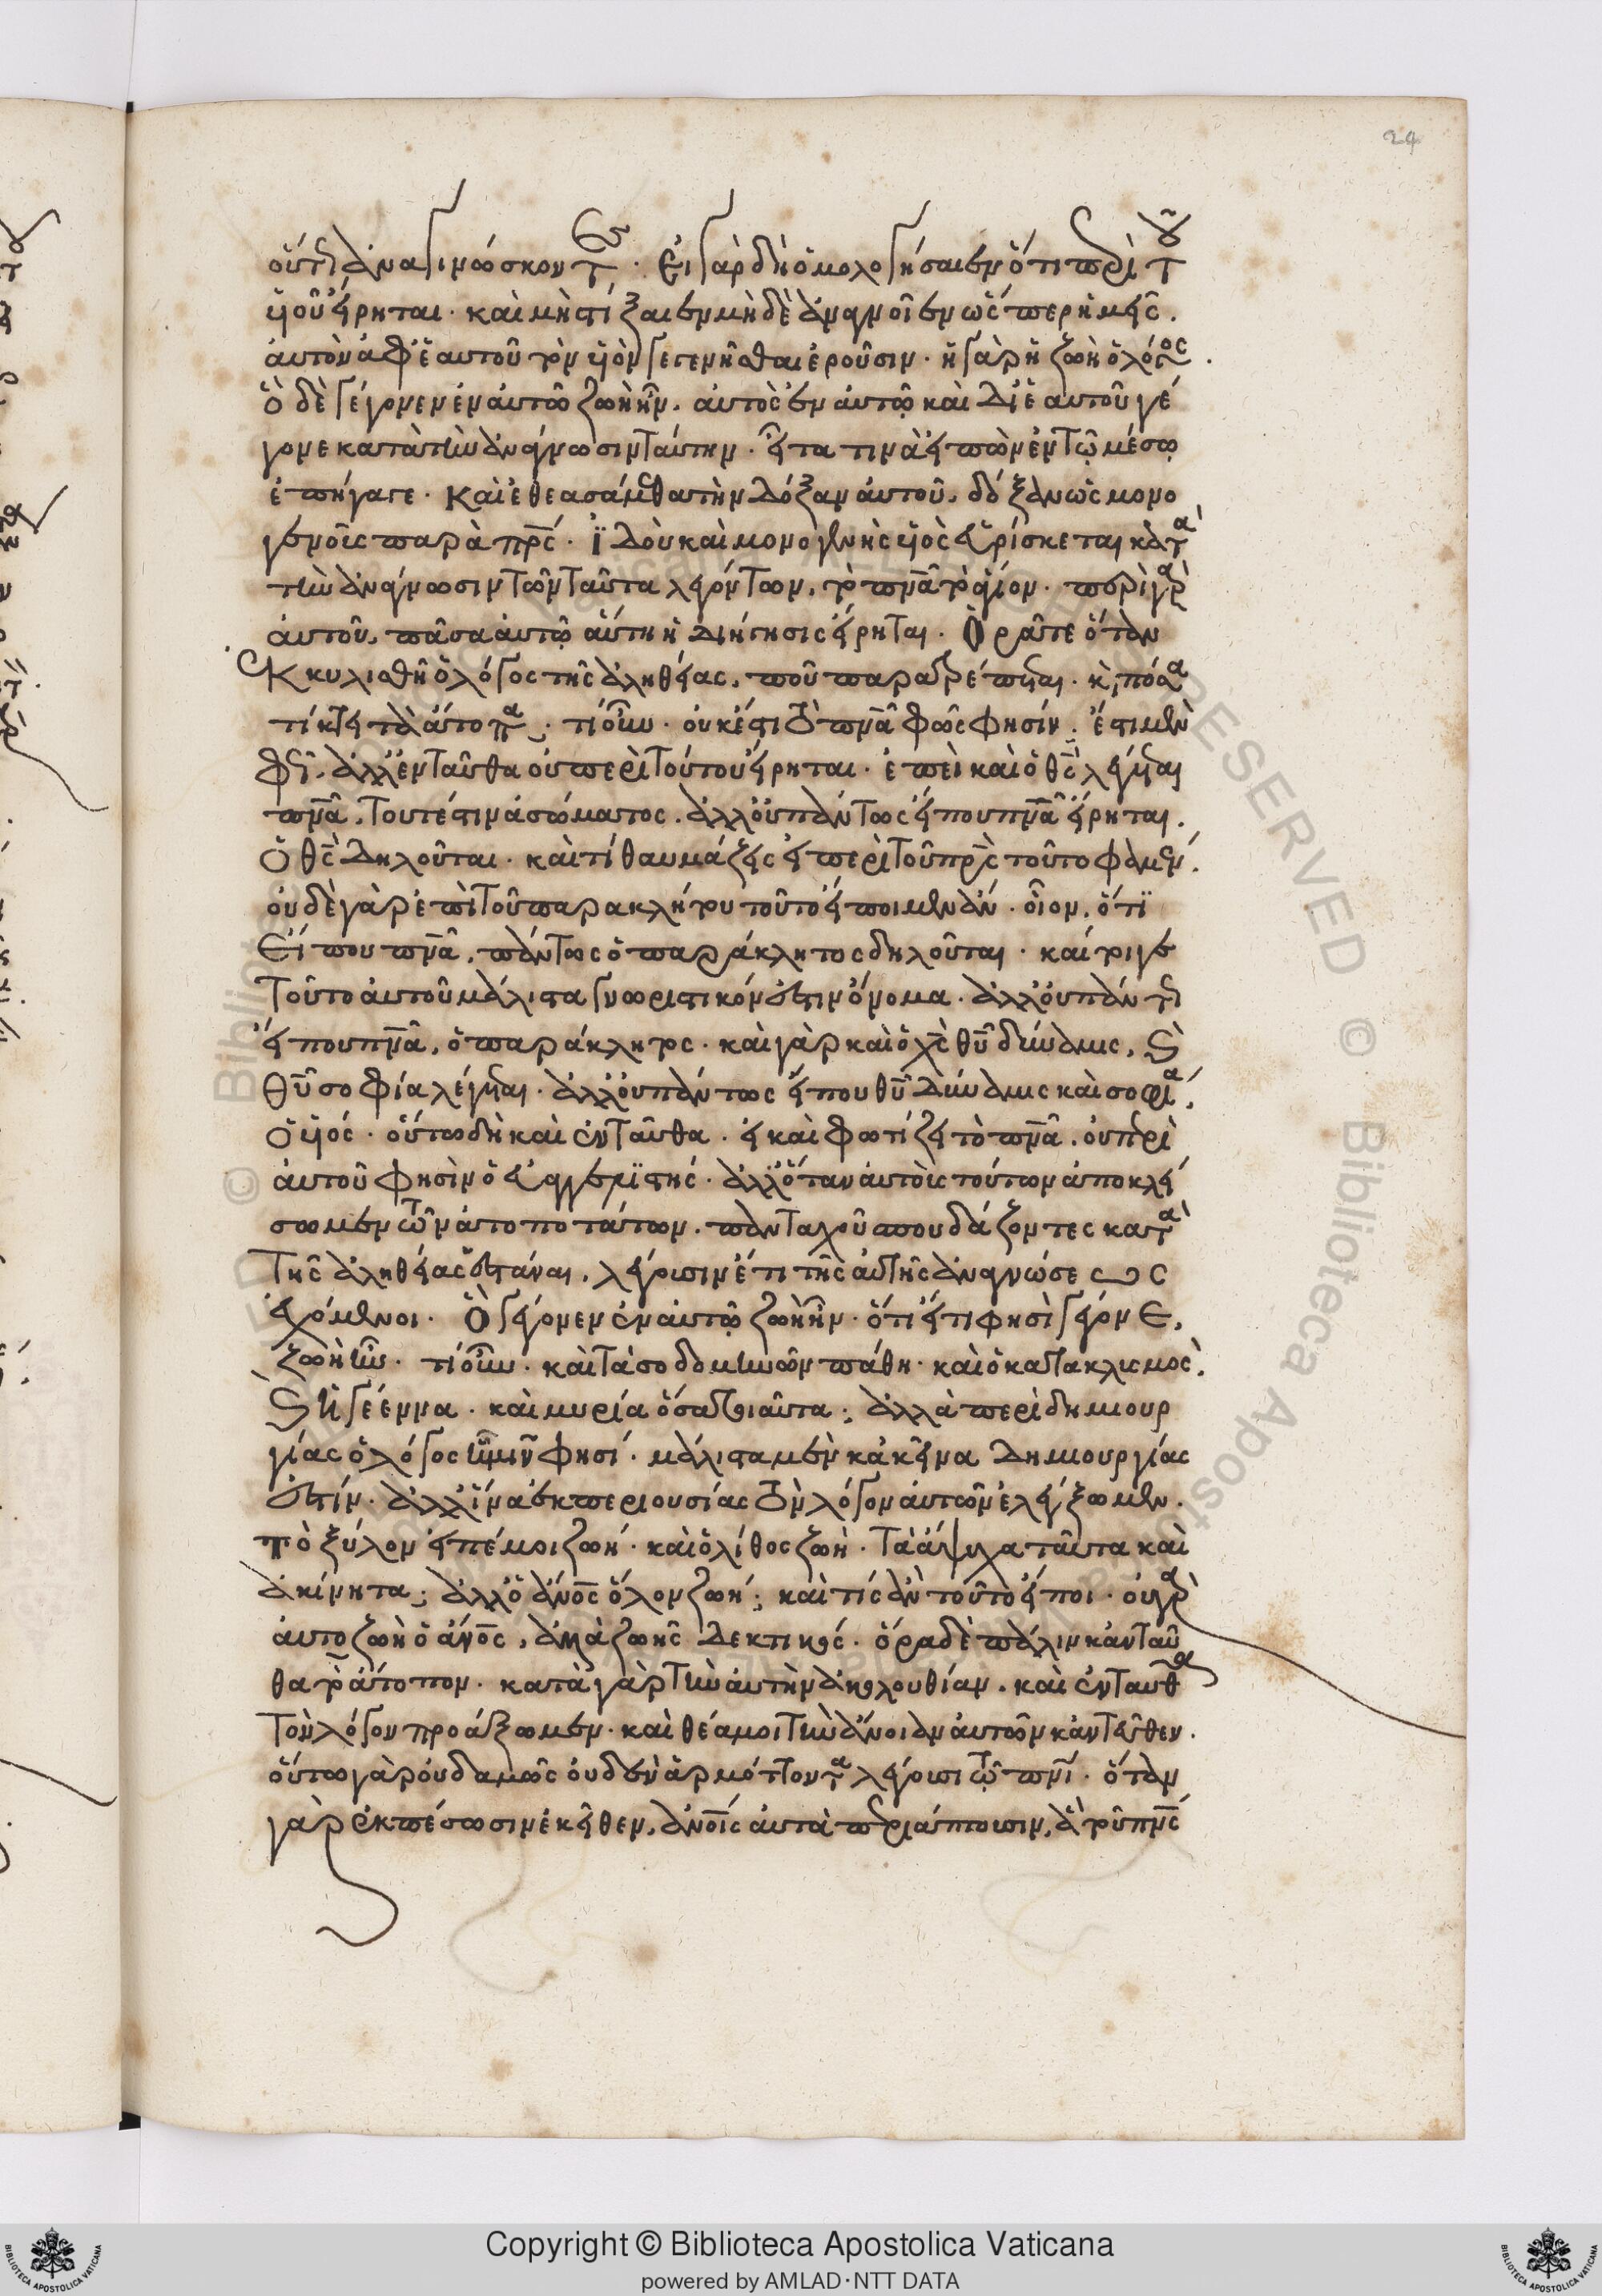 24
οὕτως ἀναγινώσκοντες. Εἰ γὰρ δὴ ὁμολογήσαιεν ὅτι περὶ τοῦ
υἱοῦ εἴρηται. καὶ μὴ στίξαιεν μηδὲ ἀναγνοῖεν ὥσπερ ἡμεῖς.
αὐτὸν ἀφ' ἑαυτοῦ τὸν υἱὸν γεγενῆσθαι ἐροῦσιν. ἡ γὰρ ἡ ζωὴ ὁ λόγος.
Ὃ δὲ γέγονεν ἐν αὐτῶ ζωὴ ἦν. αὐτὸς ἐν αὐτῷ καὶ δι' ἑαυτοῦ γέ
γονε κατὰ τὴν ἀνάγνωσιν ταύτην. εἶτα τινὰ εἰπὼν ἐν τῷ μέσῳ
ἐπήγαγε. Καὶ ἐθεασάμεθα τὴν δόξαν αὐτοῦ. δόξαν ὡς μονο
γενοῦς παρὰ πρς. Ἰδοὺ καὶ μονογενὴς υἱὸς εὑρίσκεται κατὰ
τὴν ἀνάγνωσιν τῶν ταῦτα λεγόντων, τὸ πνα τὸ ἅγιον. περὶ γὰρ
αὐτοῦ, πᾶσα αὐτῷ αὕτη ἡ διήγησις εἴρηται. Ὁρᾶτε ὅταν
ἐκκυλισθῇ ὁ λόγος τῆς ἀληθείας, ποῦ παρατρέπεται. κ, πόσα
τίκτει τὰ ἄτοπα. τί οὖν. οὐκ ἔστι τὸ πνα φῶς φησίν. ἔστι μὲν
φῶς. ἀλλ' ἐνταῦθα οὐ περὶ τούτου εἴρηται. ἐπεὶ καὶ ὁ θς λέγεται
πνα, τουτέστιν ἀσώματος. ἀλλ' οὐ πάντως εἴ που πνα εἴρηται.
Ὁ θς δηλοῦται. καὶ τί θαυμάζεις εἰ περὶ τοῦ πρς τοῦτο φαμέν.
οὐδὲ γὰρ ἐπὶ τοῦ παρακλήτου τοῦτο εἴποιμεν ἄν. οἷον, ὅτι
Εἴ που πνα, πάντως ὁ παράκλητος δηλοῦται. καί τοι γε
τοῦτο αὐτοῦ μάλιστα γνωριστικόν ἐστιν ὄνομα. ἀλλ' οὐ πάντως
εἴ που πνα, ὁ παράκλητος. καὶ γὰρ καὶ ὁ χς θυ δύναμις, καὶ
θυ σοφία λέγεται. ἀλλ' οὐ πάντως εἴ που θυ δύναμις καὶ σοφία,
Ὁ υἱός. οὕτω δὴ καὶ ἐνταῦθα. εἰ καὶ φωτίζει τὸ πνα. οὐ περὶ
αὐτοῦ φησὶν ὁ εὐαγγελιστής. ἀλλ' ὅταν αὐτοὺς τούτων ἀποκλεί
σωμεν τῶν ἀτοποτάτων. πανταχοῦ σπουδάζοντες κατὰ
τῆς ἀληθείας ἵστασθαι, λέγουσιν ἔτι τῆς αὐτῆς ἀναγνώσεως
ἐχόμενοι. Ὃ γέγονεν ἐν αὐτῷ ζωὴ ἦν. ὅτι εἴ τι φησὶ γέγονε,
ζωὴ ἦν. τί οὖν. καὶ τὰ σοδομηνῶν πάθη. καὶ ὁ κατακλυσμός.
καὶ ἡ γέεννα. καὶ μυρία ὅσα τοιαῦτα; ἀλλὰ περὶ δημιουρ
γίας ὁ λόγος ἡμῖν φησί. μάλιστα μὲν κἀκεῖνα δημιουργίας
ἐστίν. ἀλλ' ἵνα ἐκ περιουσίας τὸν λόγον αὐτῶν ἐλέγξωμεν.
τὸ ξύλον εἰπέ μοι ζωή. καὶ ὁ λίθος ζωή. τὰ ἄψυχα ταῦτα καὶ
ἀκίνητα; ἀλλ' ὁ ἄνος ὅλον ζωή; καὶ τίς ἂν τοῦτο εἴποι. οὐ γὰρ
αὐτοζωὴ ὁ ἄνος, ἀλλὰ ζωῆς δεκτικός. ὅρα δὲ πάλιν κἀνταῦ
θα τὸ ἄτοπον. κατὰ γὰρ τὴν αὐτὴν ἀκολουθίαν, καὶ ἐνταῦθα
τὸν λόγον προάξωμεν. καὶ θέα μοι τὴν ἄνοιαν αὐτῶν κἀντεῦθεν.
οὕτω γὰρ οὐδαμῶς οὐδὲν ἁρμόττοντα λέγουσι τῷ πνι. ὅταν
γὰρ ἐκπέσωσιν ἐκεῖθεν, ἀνοις αὐτὰ περιάπτουσιν, ἃ τοῦ πνς
Copyright © Biblioteca Apostolica Vaticana
powered by AMLAD·NTT DATA